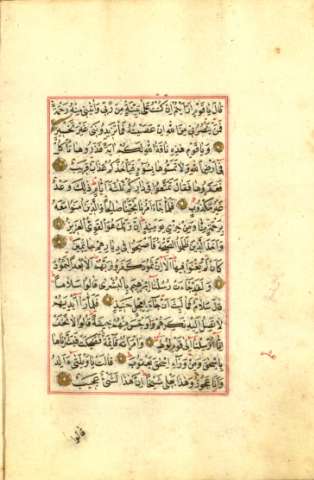 قال يا قوم ارايتم ان كنت على بينة من ربي واتاني منه رحمة
فمن ينصرني من الله ان عصيته فما تزيدونني غير تخسير
ويا قوم هذه ناقة الله لكم اية فذروها تاكل
في ارض الله ولا تمسوها بسوء فياخذكم عذاب قريب
فعقروها فقال تمتعوا في داركم ثلثة ايام ذلك وعد
غير مكذوب فلما جاء امرنا نجينا صالحا والذين امنوا معه
برحمة منا ومن خزي يومئذ ان ربك هو القوي العزيز
واخذ الذين ظلموا الصيحة فاصبحوا في ديارهم جاثمين
كان لم يغنوا فيها الا ان ثمود كفروا ربهم الا بعدا لثمود
ولقد جاءت رسلنا ابرهيم بالبشرى قالوا سلاما
قال سلام فما لبث ان جاء بعجل حنيذ فلما را ايديهم
لا تصل اليه نكرهم واوجس منهم خيفة قالوا لا تخف
انا ارسلنا الى قوم لوط وامراته قائمة فضحكت فبشرناها
باسحق ومن وراء اسحق يعقوب قالت يا ويلتى ءالد
وانا عجوز وهذا بعلي شيخا ان هذا لشيء عجيب
قالوا